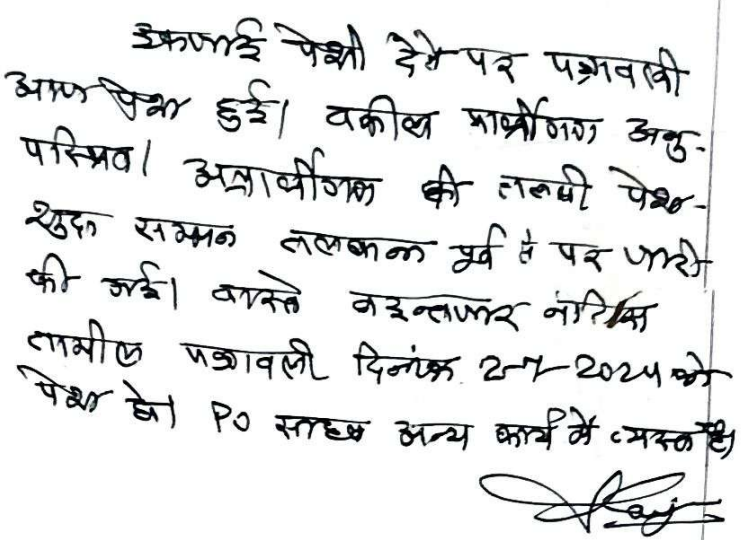 इकजाई पेशी देने पर पत्रावली
आज पेश हुई। वकील प्रार्थीगण अनु-
पस्थित। अप्रार्थीगण की तलबी पेश-
शुदा सम्मन तलबाना पूर्व पर जारी
की गई। वास्ते बइन्तजार नोटिस
तामील पत्रावली दिनांक 2-7-2024 को
पेश हो। PO साहब अन्य कार्य में व्यस्त है।